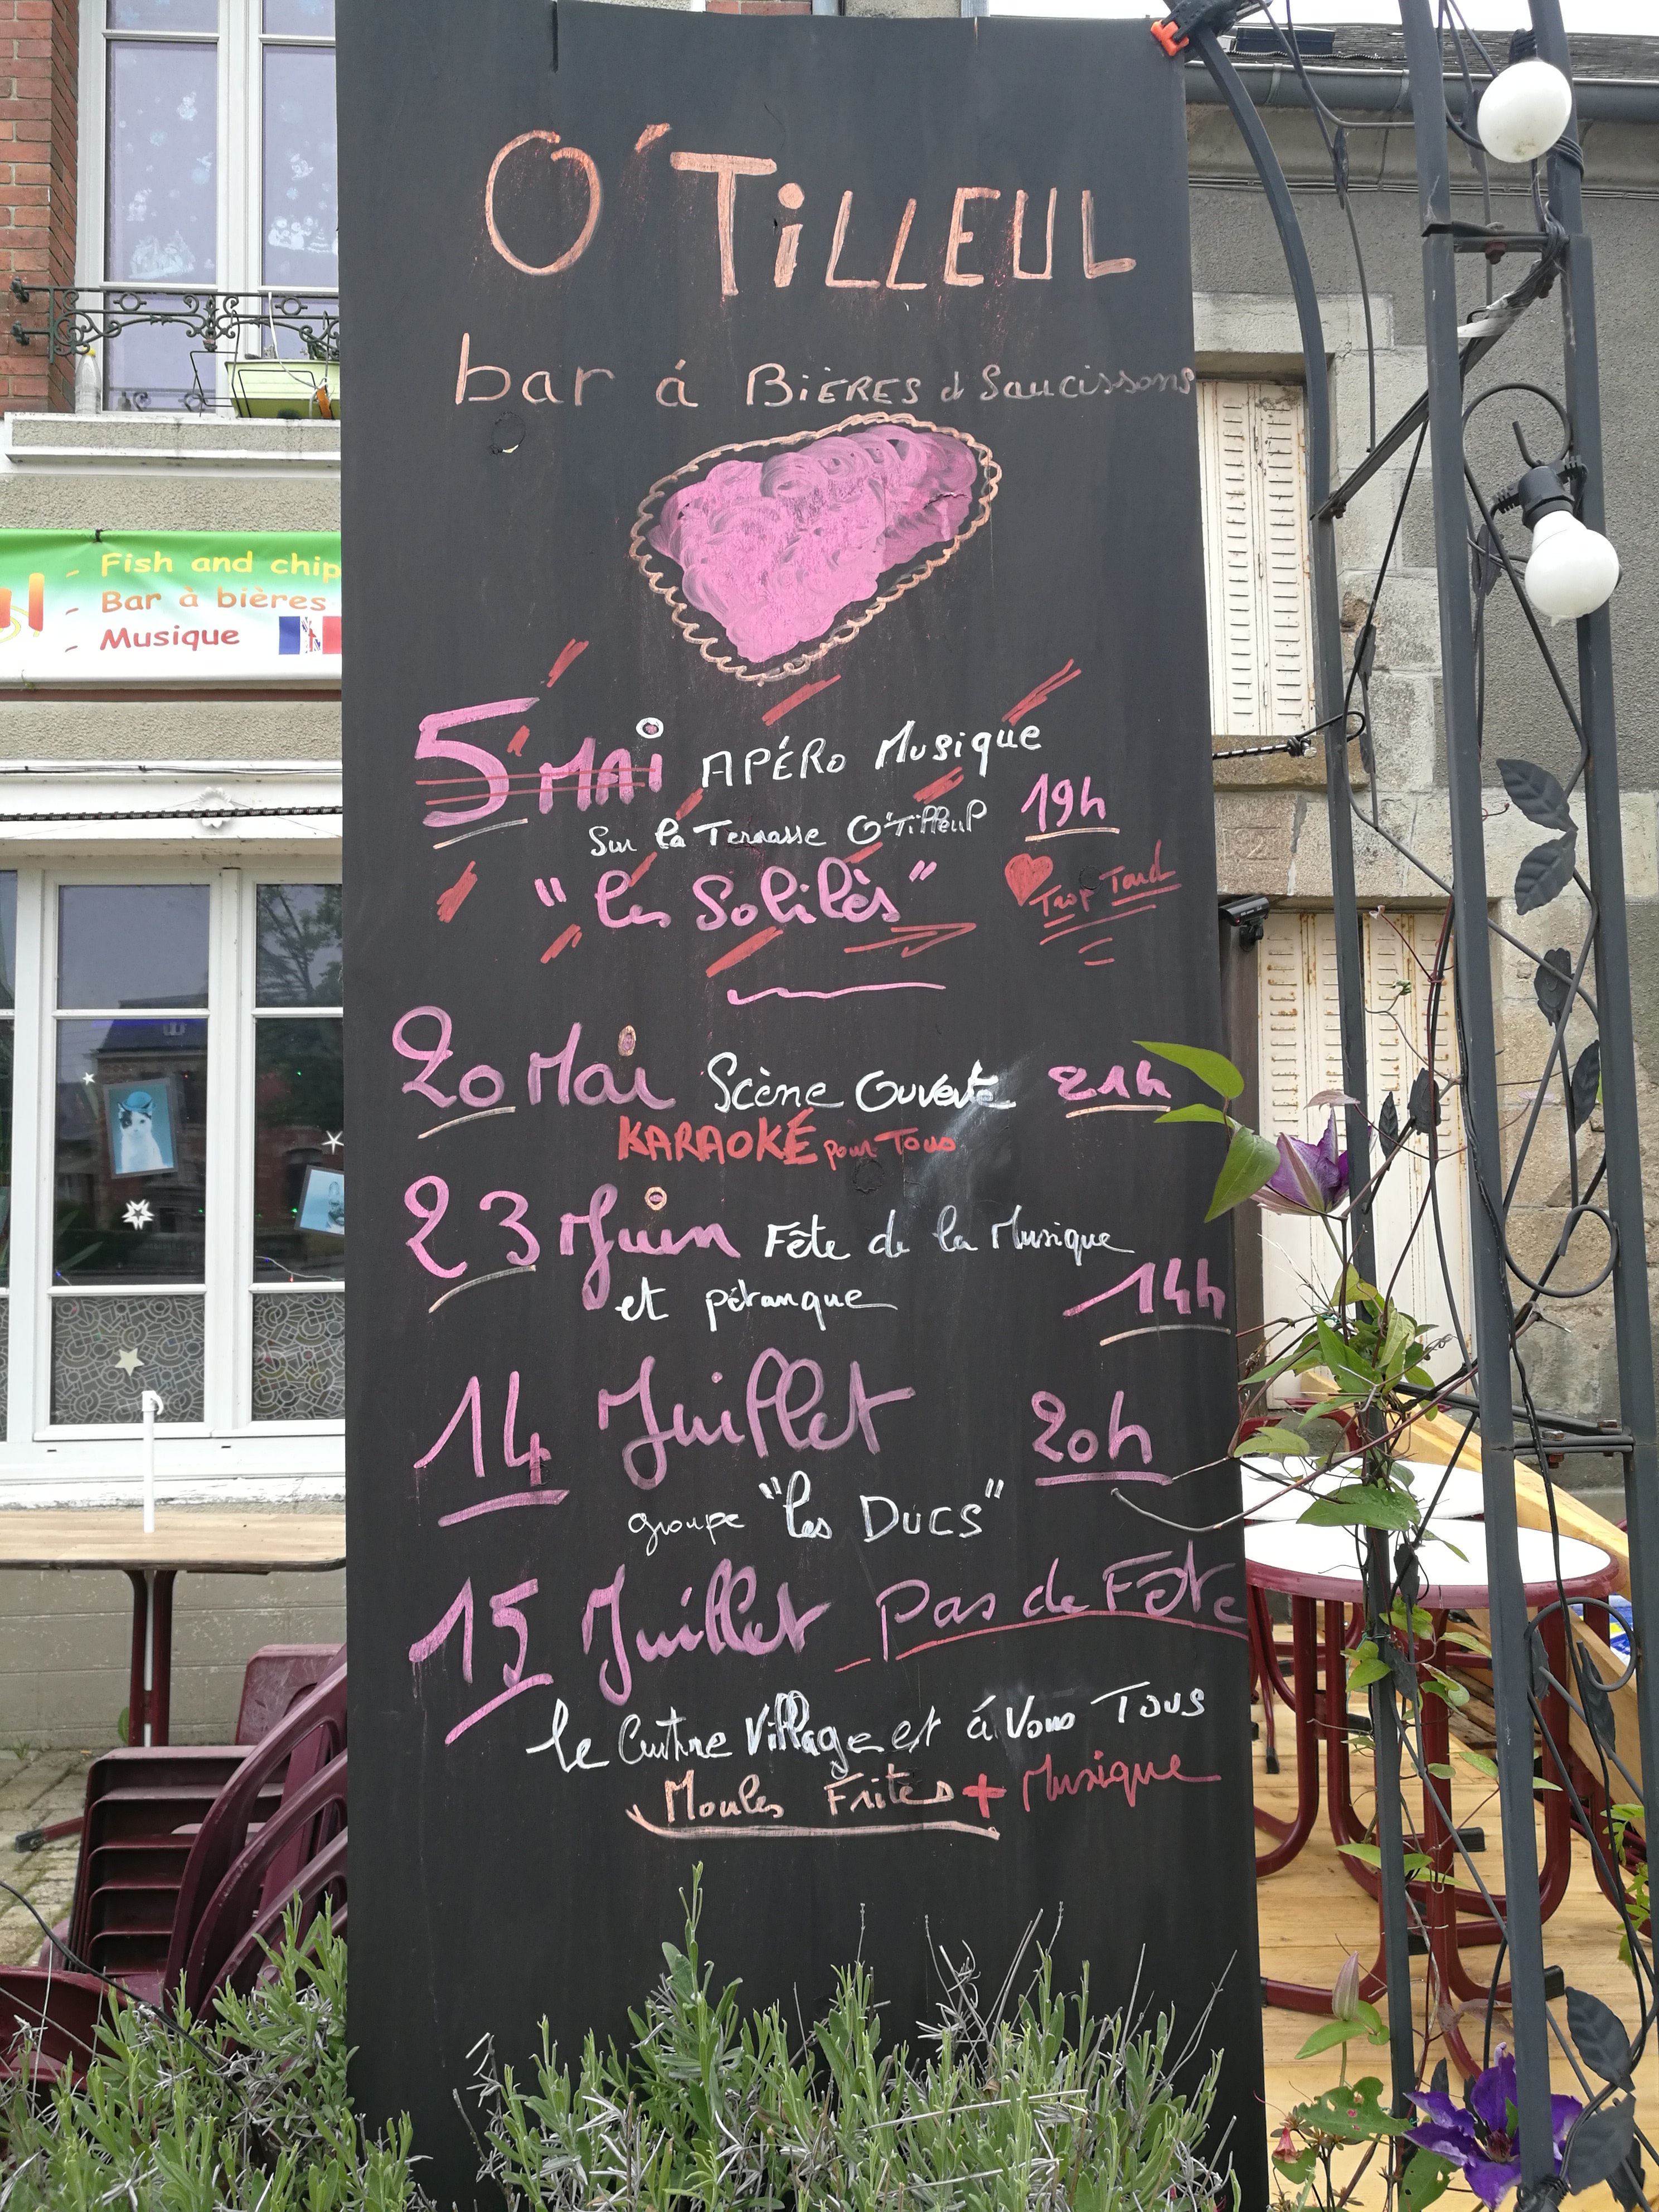 O'TiLLEUL
bar á BiÈRES et Saucissons
Fish and chip
- Bar à bières
- Musique
5 MAi APÉRo Musique
19h
Sur la Terrasse O'Tilleul
"les Solilès"
Trop Tard
20 Mai Scène Ouverte 21h
KARAOKÉ pour Tous
23 Juin Fête de la Musique
et pétanque 14h
14 Juillet 20h
groupe "les DUCS"
15 Juillet pas de Fête
le Village et á Vous Tous
Moules Frites + Musique